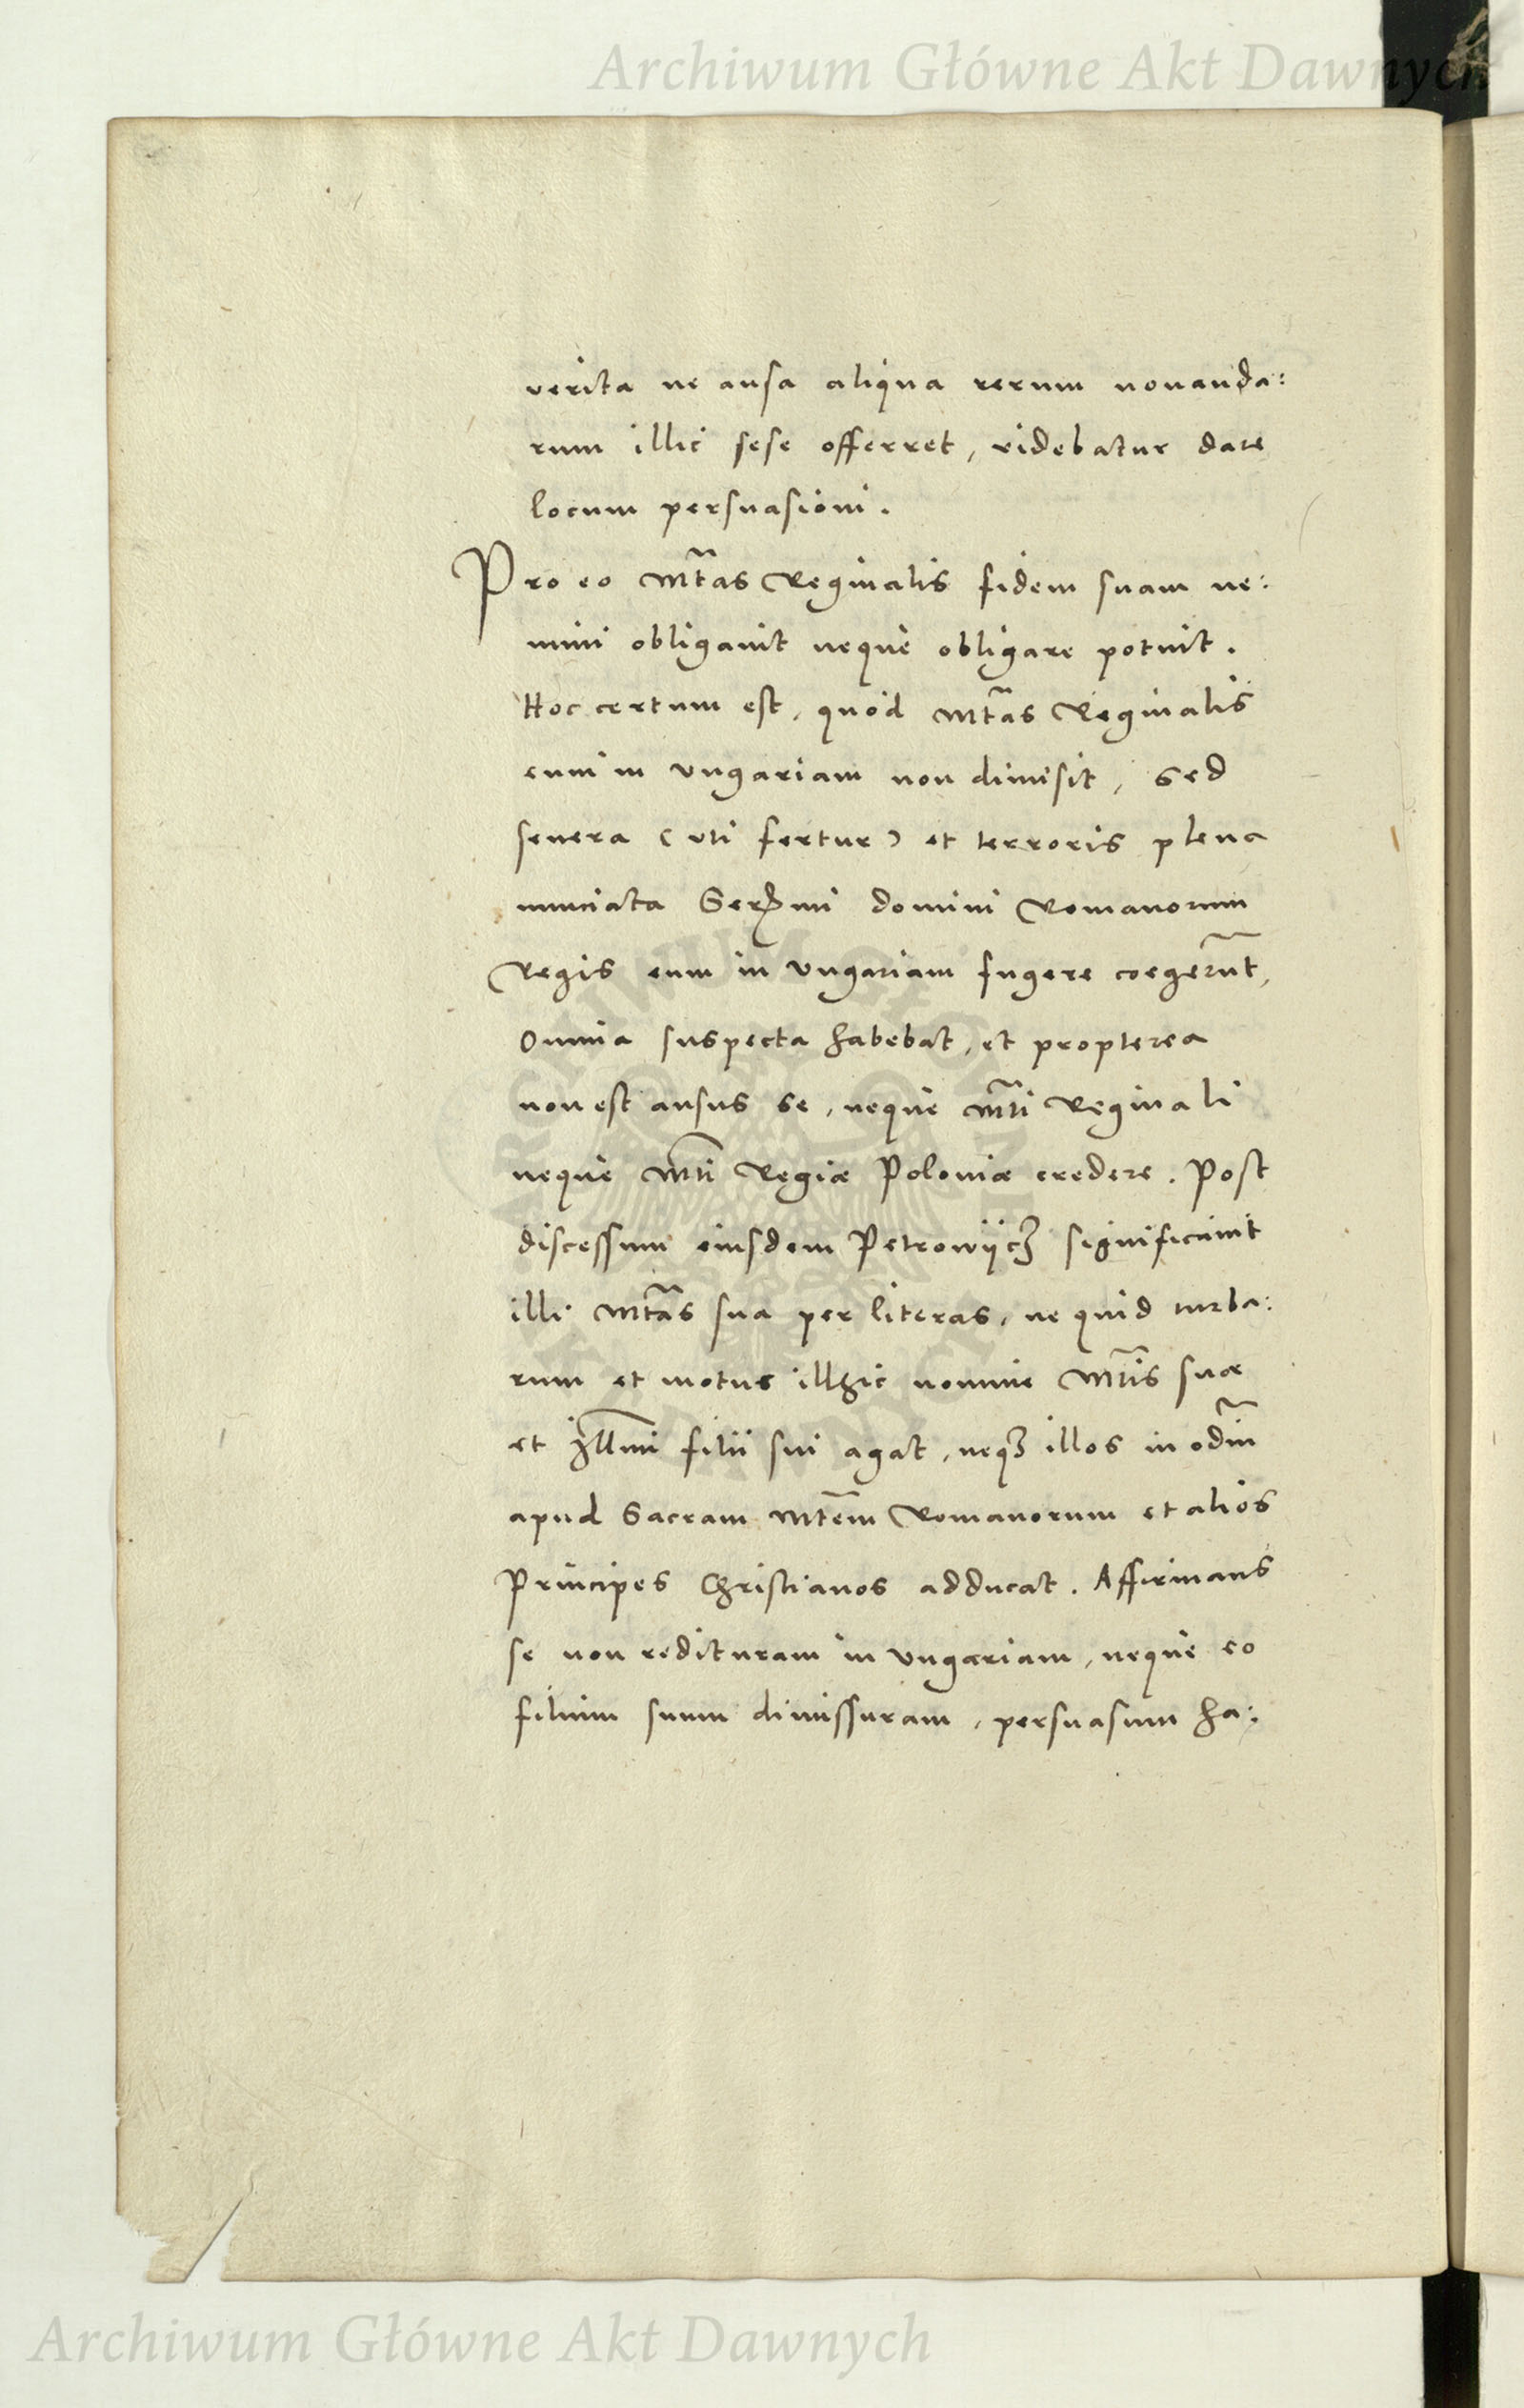 Archiwum Główne Akt Dawnych
verita ne ansa aliqua rerum nouanda:
rum illic sese offerret, videbatur dare
locum persuasioni.
Pro eo Mtas Reginalis fidem suam ne:
mini obligauit nequè obligare potuit.
Hoc certum est, quòd Mtas Reginalis
eum in Vngariam non dimisit, sed
seuera (vti fertur) et terroris plena
nunciata Sermi domini Romanorum
Regis eum in Vngariam fugere coegerunt,
Omnia suspecta habebat, et propterea
non est ausus se, nequè Mti Reginali
nequè Mti Regiæ Poloniæ credere. Post
discessum eiusdem Petrowijcz significauit
illi Mtas sua per literas, ne quid turba:
rum et motus illhic nomine Mtis suæ
et Illmi filii sui agat, neqȝ illos in odium
apud Sacram Mtem Romanorum et alios
Principes Christianos adducat. Affirmans
se non redituram in Vngariam, nequè eo
filium suum dimissuram, persuasum ha:
Archiwum Główne Akt Dawnych